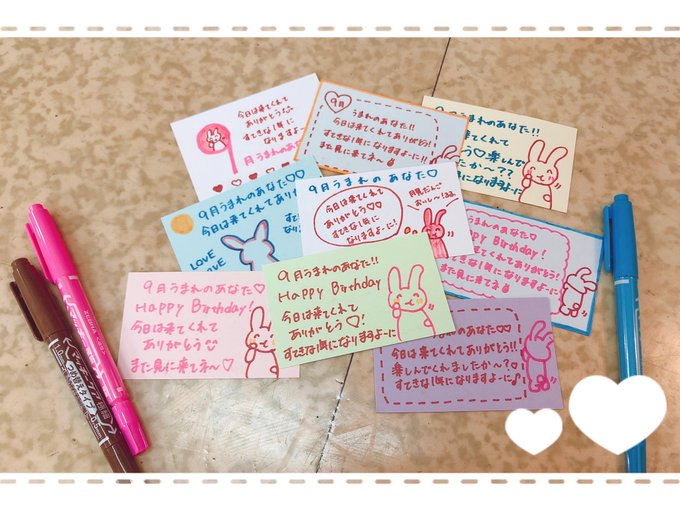 今日は来てくれて
ありがとう
すてきな1年に
なりますように
月うまれのあな
9月
うまれのあなた!!
今日は来てくれてありがとう!
すてきな1年になりますように!!
また見に来てネ〜
9月うまれのあなた!!
来てくれて
う♡楽しんで
たか〜??
になりますように
9月うまれのあなた♡♡
今日は来てくれてあり
LOVE
9月うまれのあなた!!
今日は来てくれて
ありがとう♡♡
すてきな1年に
なりますように!
月見だんご
うまれのあなた♡
ppy Birthday!
来てくれてありがとう!
1年になりますように
また見に来てネ
9月うまれのあなた♡
HAPPY Birthday!
今日は来てくれて
ありがとう
また見に来てネ〜♡
9月うまれのあなた!!
HAPPY Birthday
今日は来てくれて
ありがとう♡!
すてきな1年になりますように
うまれのあなた♡♡
今日は来てくれてありがとう!!
楽しんでくれましたか〜?
すてきな1年になりますように♪
マッキーケア
つめ替えタイプ